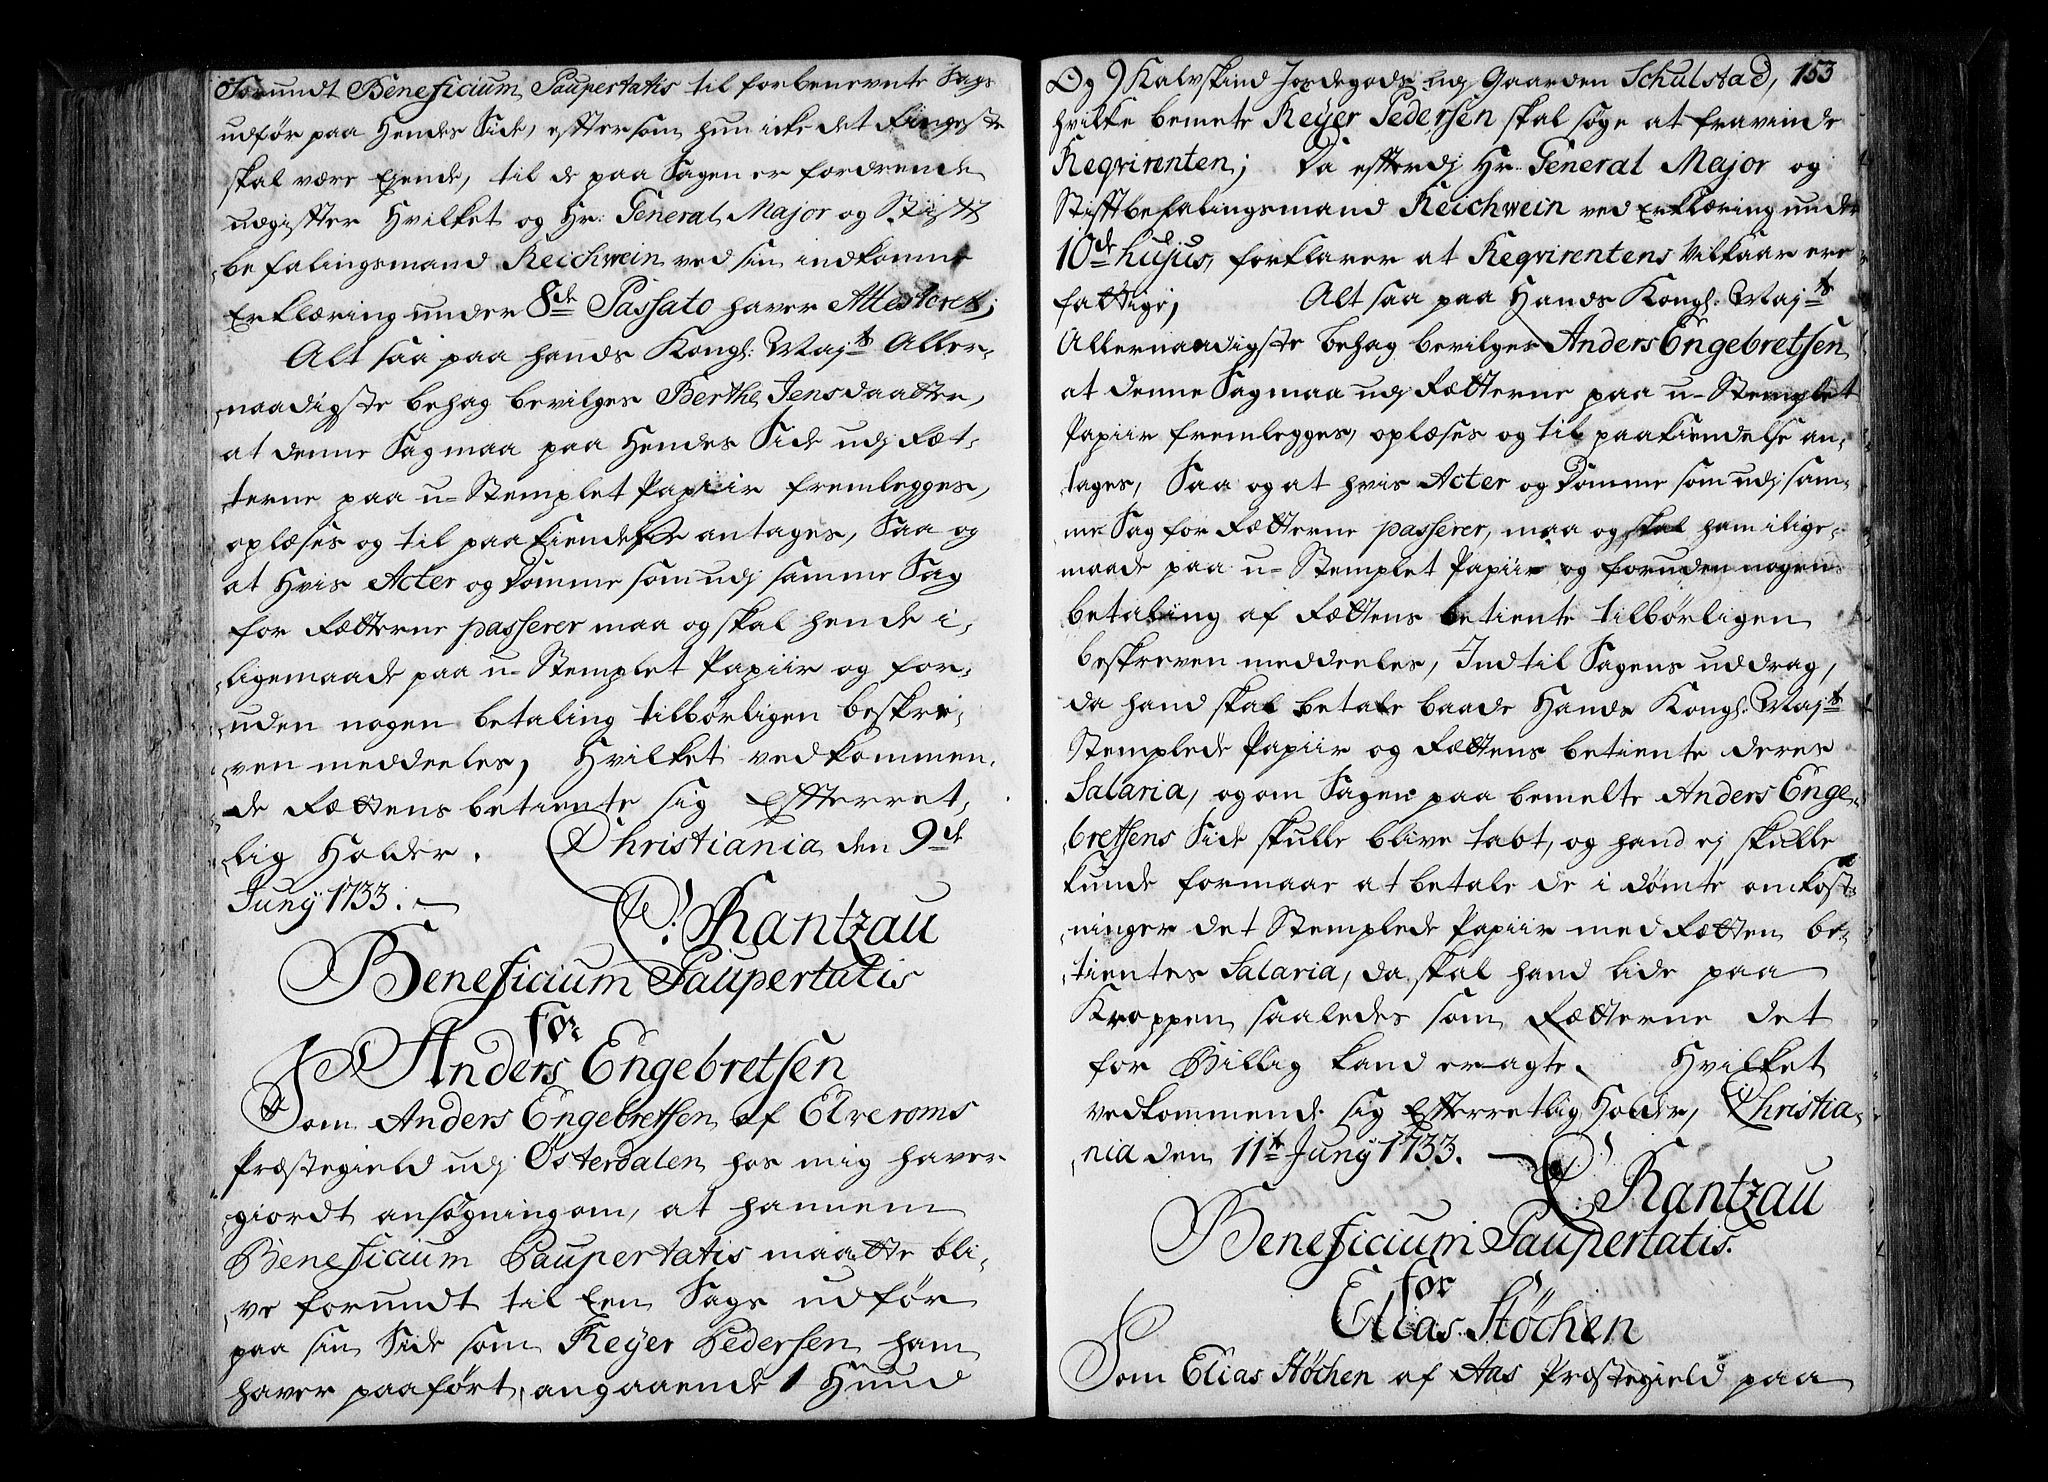 forundt Beneficium Paupertatis til forbenevnte Sags
udför paa Hendes Side, efftersom hun icke det Ringeste
skal være Ejende, til de paa Sagen er fordrende
udgiffter Hvilket og Hr: General Major og Stifft
befalingsmand Reichwein ved sin indkomne
Erklæring under 8de Passato haver Attesteret;
Alt saa paa hands Kongl: Mayts Aller-
naadigste behag bevilges Berthe Jensdaatter,
at denne Sag maa paa Hendes Side udj Ret-
terne paa u-Stemplet Papiir fremlegges,
oplæses og til paakiendelse antages, Saa og
at Hvis Acter og Domme som udj samme Sag
for Retterne passerer maa og skal hende i-
ligemaade paa u-Stemplet Papiir og for-
uden nogen betaling tilbörligen beskre-
ven meddeeles, Hvilket vedkommen-
de Rettens betiente sig Efterret-
lig Holder. Christiania den 9de
Juny 1733.
C: Rantzau
Beneficium Paupertatis
for
Anders Engebretsen
Som Anders Engebretsen af Elveroms
Præstegield udj Österdalen hos mig haver
giordt ansøgning om, at hannem
Beneficium Paupertatis maatte bli-
ve forundt til Een Sags udför
paa sin Side som Reyer Pedersen ham
haver paafört, angaaende 1 Hund
153
Og 9 Kalvskind Jordegods udj Gaarden Schulstad,
hvilke bemte Reyer Pedersen skal søge at fravinde
Reqvirenten; Da efterdj Hr. General Major og
Stifftbefalingsmand Reichwein ved Erklæring under
10de hujus, forklarer at Reqvirentens Vilkaar ere
fattige, Alt saa paa Hands Kongl: Mayts
Allernaadigste behag bevilges Anders Engebretsen
at denne Sag maa udj Retterne paa u-Stemplet
Papiir fremlegges, oplæses og til paakiendelse an-
tages, Saa og at hvis Acter og Domme som udj sam-
me Sag for Retterne passerer, maa og skal ham ilige-
maade paa u-Stemplet Papiir og foruden nogen
betaling af Rettens betiente tilbörligen
beskreven meddeeles, Indtil Sagens uddrag,
da hand skal betale baade Hands Kongl: Mayts
Stemplede Papiir og Rettens betiente deres
Salaria, og om Sagen paa bemelte Anders Enge-
bretsens Side skulle blive tabt, og hand ej skulle
kunde formaae at betale de i dömte omkost-
ninger det Stemplede Papiir med Retten be-
tientes Salaria, da skal hand lide paa
Kroppen saaledes som Retterne det
for Billig kand eragte. Hvilket
vedkommende sig Efterretlig Holder, Christia-
nia den 11te Juny 1733.
C: Rantzau
Beneficium Paupertatis.
for
Elias Stöchen
Som Elias Stöchen af Aas Præstegield paa